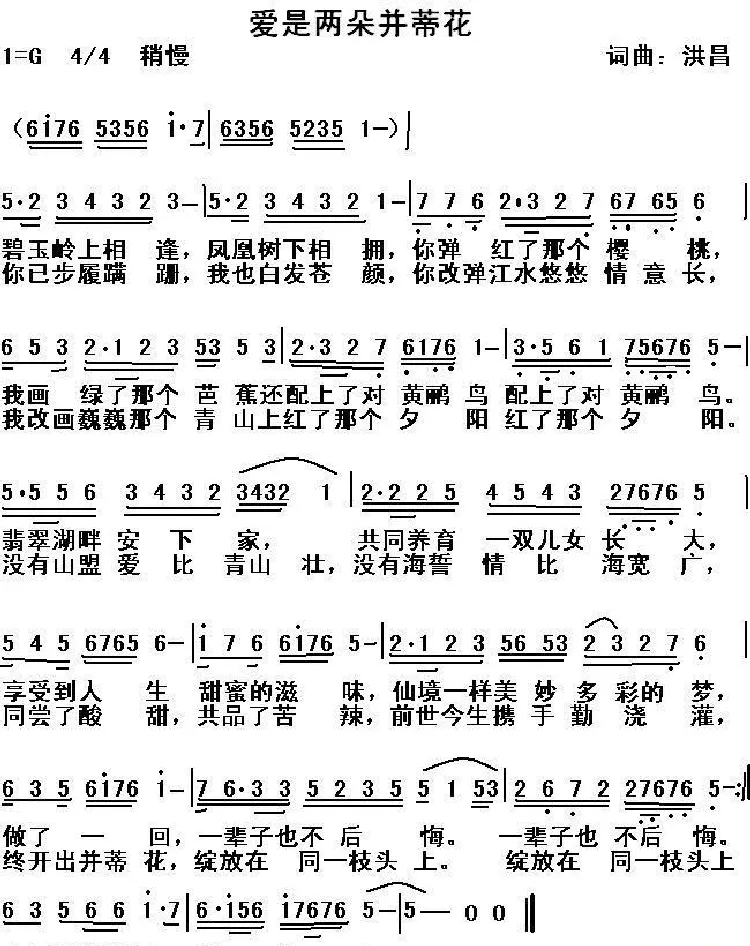 爱是两朵并蒂花
1=G 4/4 稍慢 词曲：洪昌
（6i76 5356 i·7|6356 5235 1-）
5·2 3 4 3 2 3-|5·2 3 4 3 2 1-|7 7 6 2·3 2 7 67 65 6|
碧玉岭上相 逢，凤凰树下相 拥，你弹 红了那个 樱 桃，
你已步履蹒 跚，我也白发苍 颜，你改弹江水悠悠 情 意 长，
6 5 3 2·1 2 3 53 5 3|2·3 2 7 6176 1-|3·5 6 1 75676 5-|
我画 绿了那个 芭 蕉还配上了对 黄鹂 鸟 配上了对 黄鹂 鸟。
我改画巍巍那个 青 山上红了那个 夕 阳 红了那个 夕 阳。
5·5 5 6 3 4 3 2 3432 1|2·2 2 5 4 5 4 3 27676 5|
翡翠湖畔 安 下 家， 共同养育 一双儿女 长 大，
没有山盟 爱 比 青山 壮，没有海誓 情 比 海宽 广，
5 4 5 6765 6-|i 7 6 6i76 5-|2·1 2 3 56 53 2 3 2 7 6|
享受到人 生 甜蜜的滋 味，仙境一样美 妙 多 彩的 梦，
同尝了酸 甜，共品了苦 辣，前世今生携 手 勤 浇 灌，
6 3 5 6i76 i-|7 6·3 3 5 2 3 5 5 1 53|2 6 7 2 27676 5-:|
做了 一 回，一辈子也 不 后 悔。 一辈子也 不后 悔。
终开出并蒂 花，绽放在 同一枝头 上。 绽放在 同一枝头上
6 3 5 6 5 6 i·7|6·i56 i7676 5-|5- 0 0‖